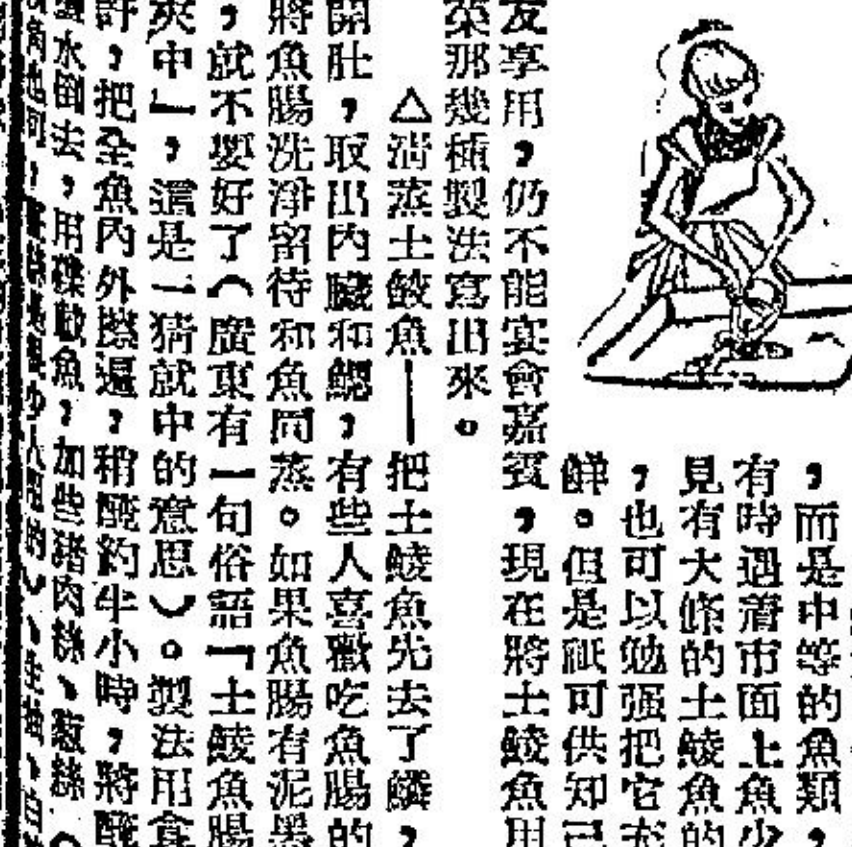 ，而是中等的魚類，
有時遇着市面上魚少
見有大條的土鯪魚的
，也可以勉强把它充
鮮。但是祇可供知己
友享用，仍不能宴會嘉賓，現在將土鯪魚用
菜那幾種製法寫出來。
△清蒸土鯪魚——把土鯪魚先去了鱗，
開肚，取出內臟和鰓，有些人喜歡吃魚腸的
將魚腸洗淨留待和魚同蒸。如果魚腸有泥墨
，就不要好了（廣東有一句俗語「土鯪魚腸
夾中」，這是一猜就中的意思）。製法用食
許，把全魚內外擦遍，稍醃約半小時，將醃
鹽水倒去，用碟載魚，加些豬肉絲、葱絲（